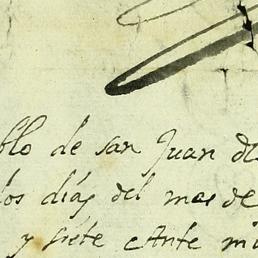 blo de san Juan de
los días del mes de
y siete Ante mi